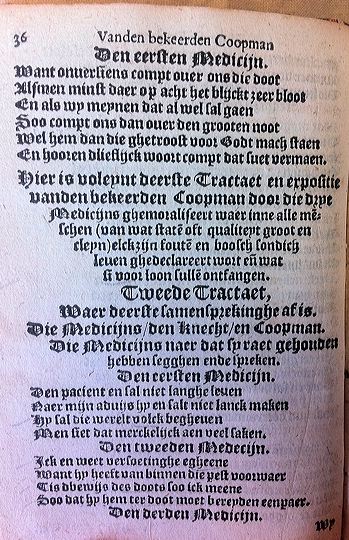 36 Vanden bekeerden Coopman
Den eersten Medicijn.
Want onversiens compt over ons die doot
Alsmen minst daer op acht het blijckt zeer bloot
En als wy meynen dat al wel sal gaen
Soo compt ons dan over den grooten noot
Wel hem dan die ghetroost voor Godt mach staen
En hooren dlieflijck woort compt dat suet vermaen.
Hier is voleynt deerste Tractaet en expositie
vanden bekeerden Coopman door die drye
Medicijns ghemoraliseert waer inne alle mē-
schen (van wat statē oft qualiteyt groot en
cleyn) elckzijn foutē en boosch sondich
leven ghedeclareert wort eñ wat
si voor loon sullē ontfangen.
Tweede Tractaet,
Waer deerste samensprekinghe af is.
Die Medicijns/den Knecht/en Coopman.
Die Medicijns naer dat sp raec gehouden
hebben segghen ende spreken.
Den eersten Medicijn.
Den pacient en sal niet langhe leven
Naer mijn advijs hy en salt niet lanck maken
Hy sal die werelt volck begheven
Men siet dat merckelijck aen veel saken.
Den tweeden Medecijn.
Ick en weet versoetinghe egheene
Want hy heeft van binnen die pest voorwaer
Tis dbewijs des doots soo ick meene
Soo dat hy hem ter doot moet bereyden eenpaer.
Den derden Medicijn.
Wy